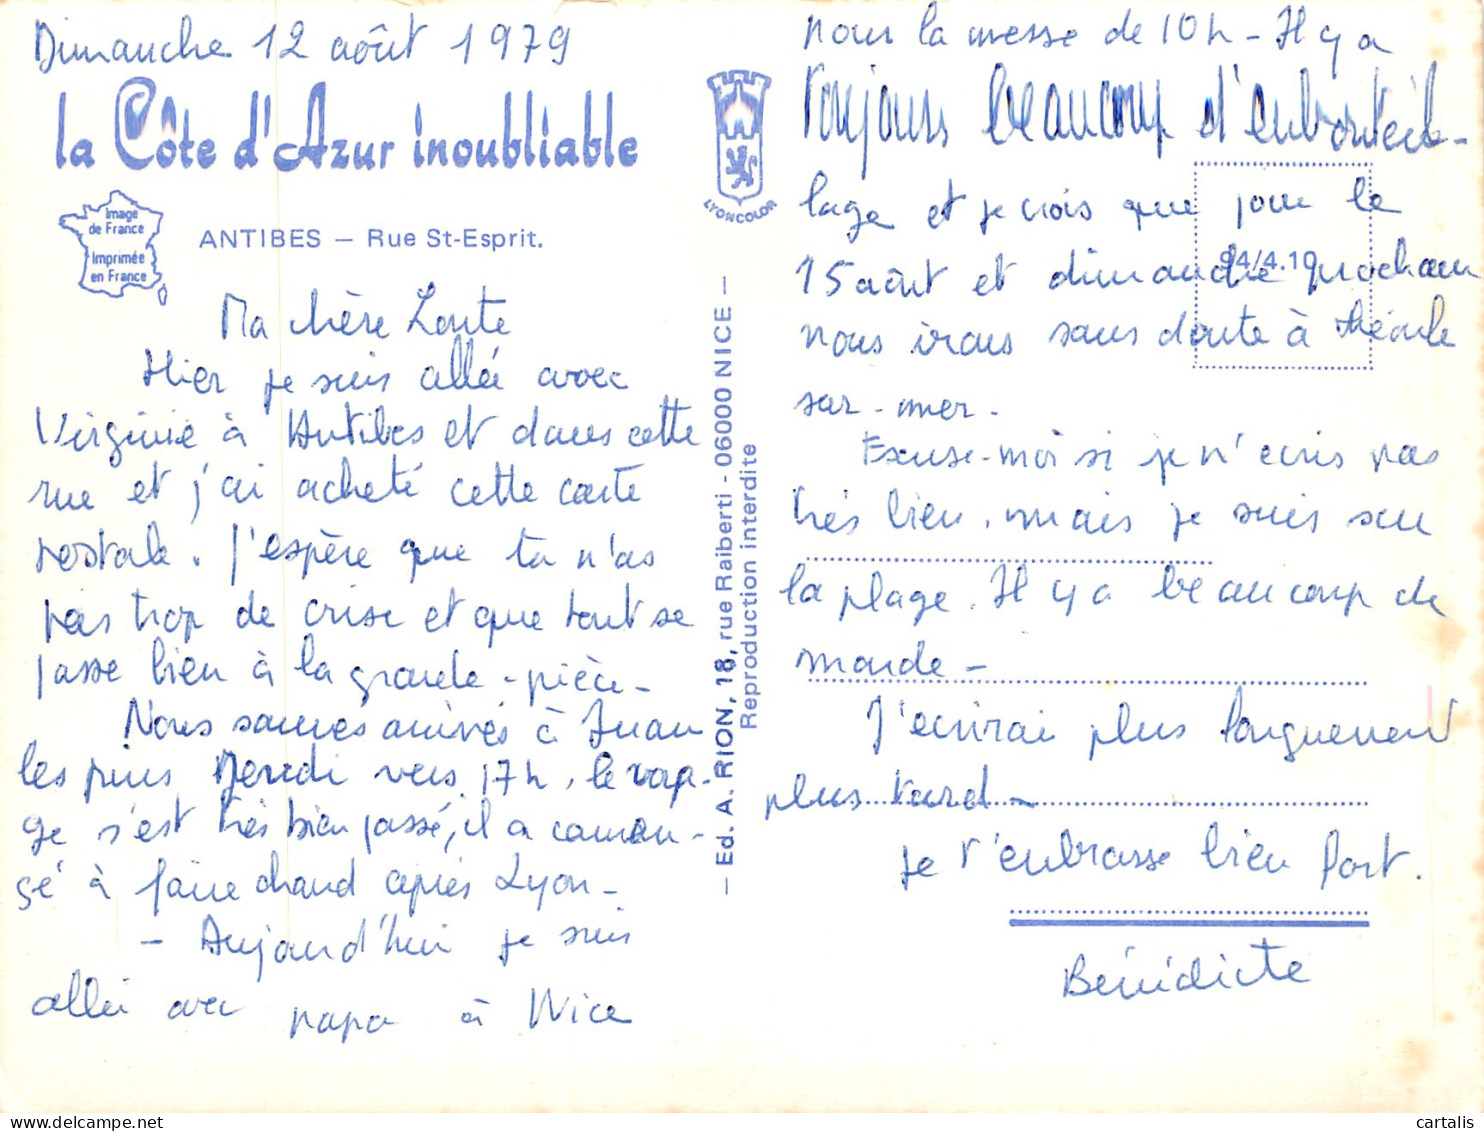 Dimanche 12 août 1979
la Côte d'Azur inoubliable
Image
de France
Imprimée
en France
ANTIBES — Rue St-Esprit.
Ma chère
Hier je suis allée avec
Virginie à Antibes et dans cette
rue et j'ai acheté cette carte
postale. J'espère que tu n'as
pas trop de crise et que tout se
passe bien à la grande-pièce-
Nous sommes arrivés à Juan
les pins Mercredi vers 17h, le voya-
ge s'est très bien passé, il a commen-
cé à faire chaud après Lyon-
- Aujourd'hui je suis
allée avec papa à Nice
LYONCOLOR
— Ed. A. RION, 18, rue Raiberti - 06000 NICE —
Reproduction interdite
nous la messe de 10h - Il y a
toujours beaucoup d'embouteil-
lage et je crois que pour le
94/4.10
15 août et dimanche prochain
nous irons sans doute à théoule
sur-mer-
Excuse-moi si je n'écris pas
très bien, mais je suis sur
la plage. Il y a beaucoup de
monde-
J'écrirai plus longuement
plus tard-
Je t'embrasse bien fort.
Bénédicte
cartalis